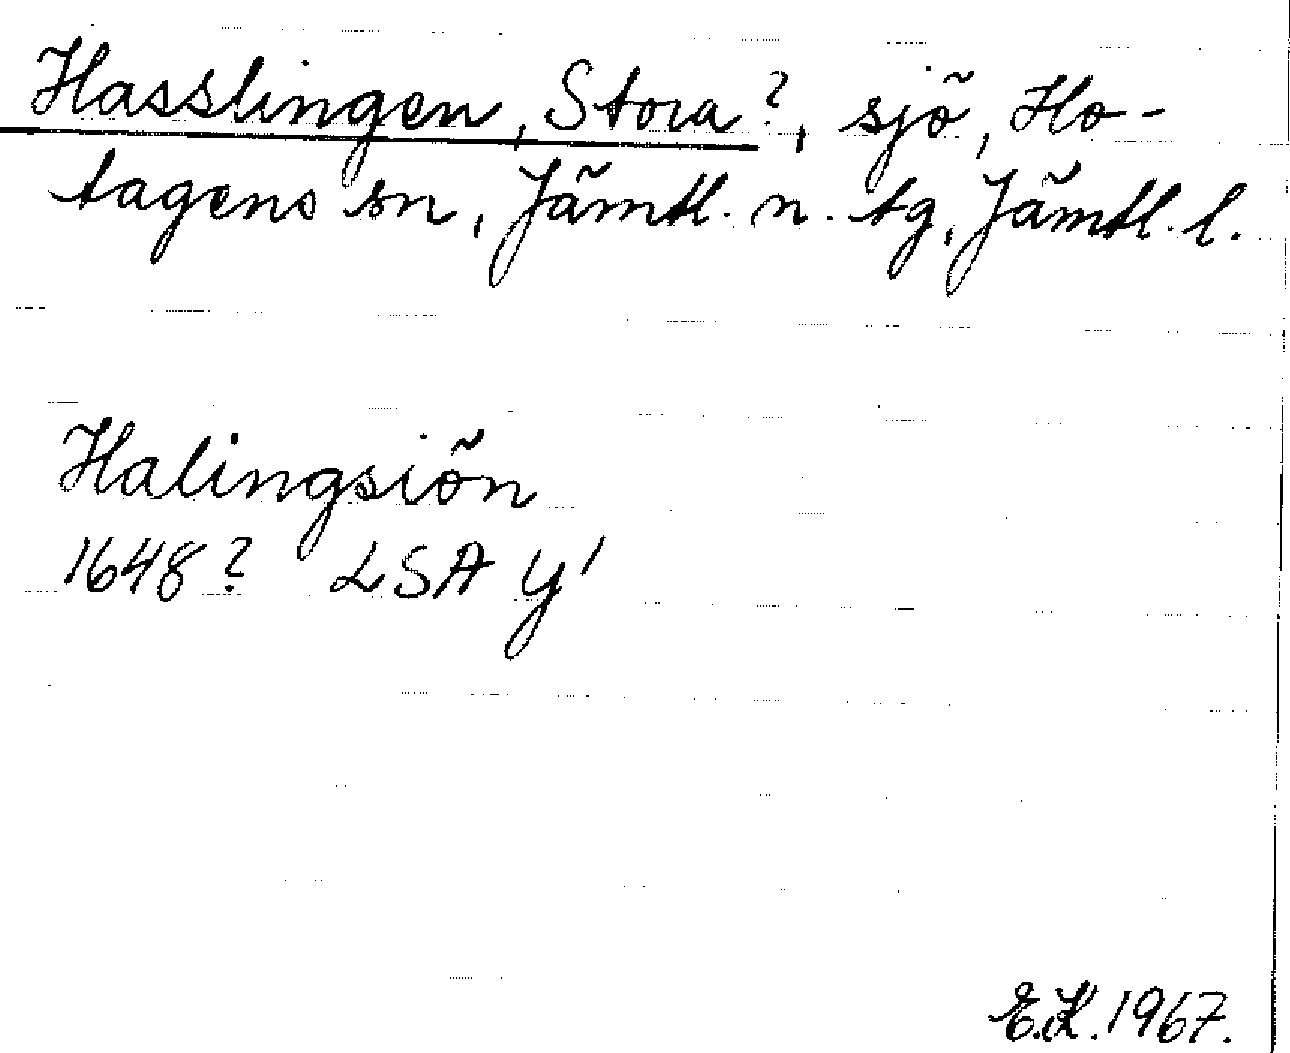 Hasslingen, Stora?, sjö, Ho-
tagens sn, Jämtl. n. tg, Jämtl. l.
Halingsiön
1648? LSA Y'
E.K. 1967.